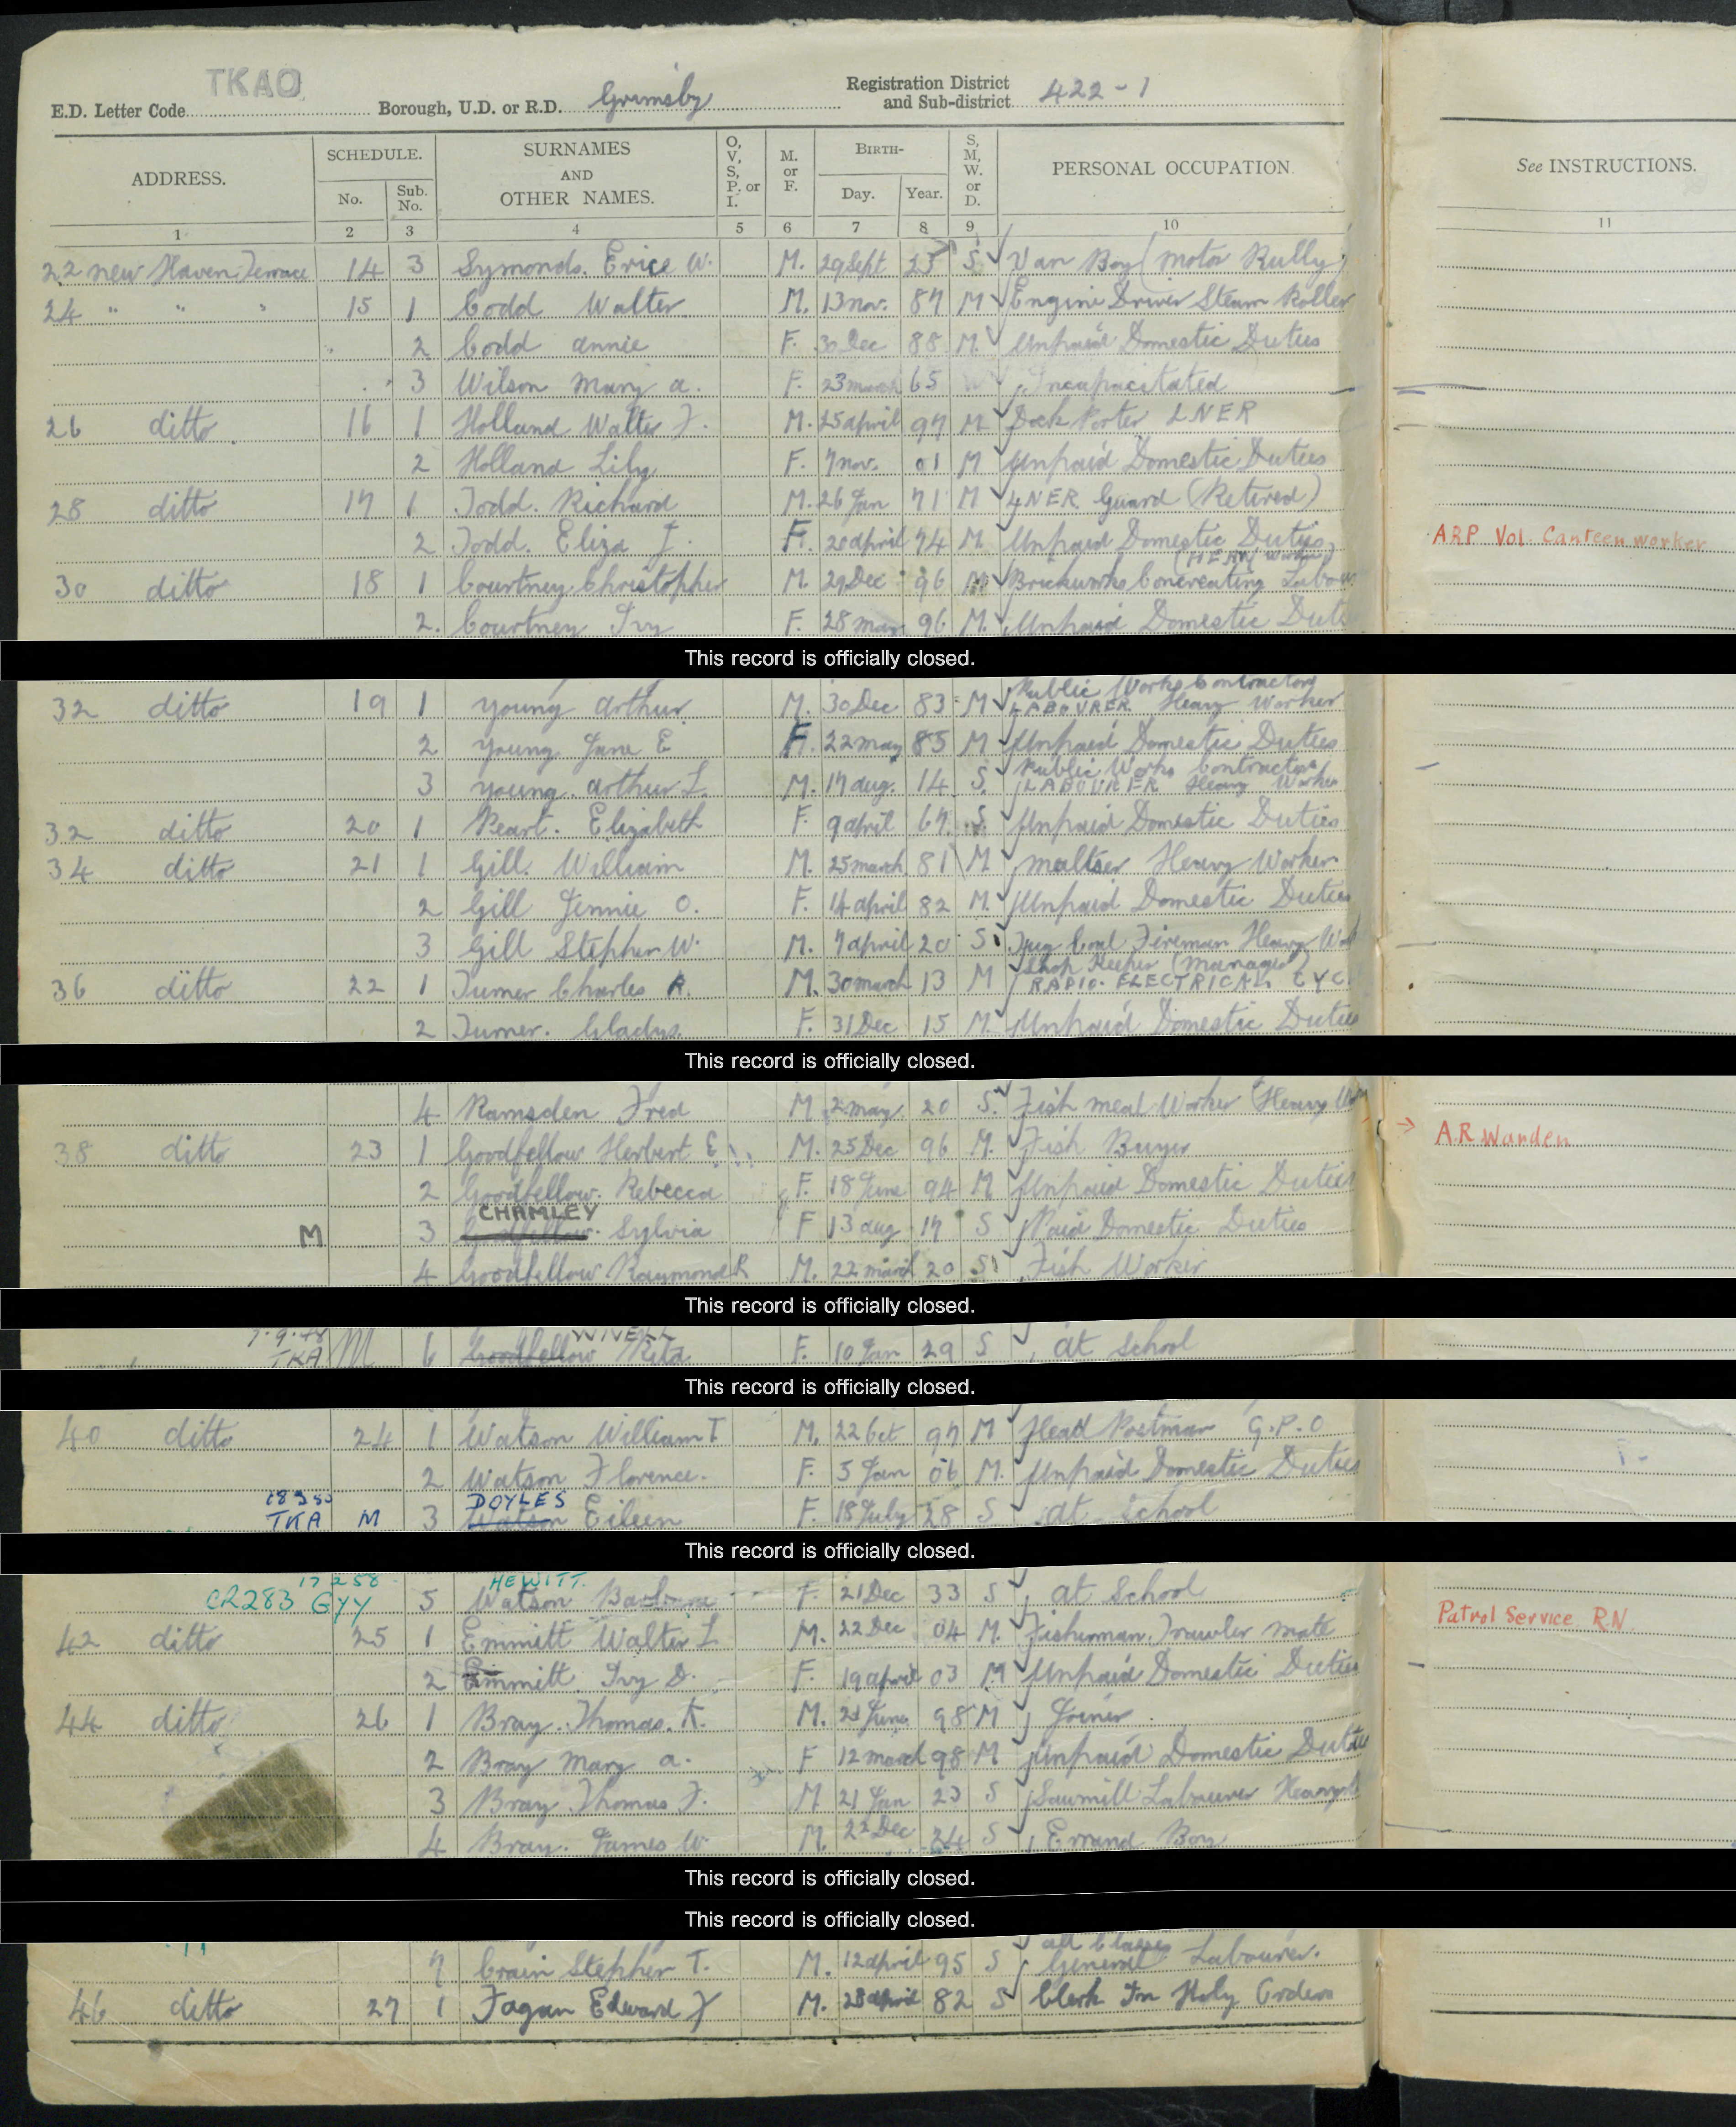 TKAO
E.D. Letter Code Borough, U.D. or R.D. Grimsby Registration District and Sub-district 422-1
ADDRESS. SCHEDULE. No. Sub. No. SURNAMES AND OTHER NAMES. O, V, S, P. or I. M. or F. BIRTH- Day. Year. S, M, W. or D. PERSONAL OCCUPATION. See INSTRUCTIONS.
1 2 3 4 5 6 7 8 9 10 11
22 new Haven Terrace 14 3 Symonds. Erice W. M. 29 Sept 25 S Van Boy (Motor Rully)
24 " " " 15 1 Codd Walter M. 13 nov. 87 M Engine Driver Steam Roller
2 Codd annie F. 30 Dec 88 M. Unpaid Domestic Duties
3 Wilson Mary a. F. 23 march 65 W Incapacitated
26 ditto 16 1 Holland Walter F. M. 25 april 97 M Dock Porter LNER
2 Holland Lily F. 7 nov. 01 M Unpaid Domestic Duties
28 ditto 17 1 Todd. Richard M. 26 Jan 71 M LNER Guard (Retired)
2 Todd. Eliza J. F. 20 april 74 M. Unpaid Domestic Duties ARP Vol. Canteen worker
30 ditto 18 1 Courtney Christopher M. 29 Dec 96 M Brickworks Concreating Labour (HEAVY WORKER)
2. Courtney Ivy F. 28 may 96 M. Unpaid Domestic Duti
This record is officially closed.
32 ditto 19 1 Young Arthur M. 30 Dec 83 M Public Works Contractors LABOURER Heavy Worker
2 Young Jane E F. 22 may 85 M Unpaid Domestic Duties
3 Young. Arthur L. M. 17 aug. 14 S. Public Works Contractor LABOURER Heavy Worker
32 ditto 20 1 Peart. Elizabeth F. 9 april 67 S. Unpaid Domestic Duties
34 ditto 21 1 Gill. William M. 25 march 81 M maltser Heavy Worker
2 Gill Jennie O. F. 14 april 82 M. Unpaid Domestic Duties
3 Gill Stephen W. M. 7 april 20 S. Tug Coal Fireman Heavy Wo
36 ditto 22 1 Turner Charles R. M. 30 march 13 M Shop Keeper (Manager) RADIO. ELECTRICAL CYC
2 Turner. Gladys. F. 31 Dec 15 M. Unpaid Domestic Duties
This record is officially closed.
4 Ramsden Fred M 2 may 20 S. Fish meal Worker (Heavy Wor
38 ditto 23 1 Goodfellow Herbert E. M. 25 Dec 96 M. Fish Buyer → A.R Warden
2 Goodfellow. Rebecca F. 18 June 94 M Unpaid Domestic Duties
CHAMLEY
M 3 Goodfellow. Sylvia F 13 aug 17 S Paid Domestic Duties
4 Goodfellow Raymond R M. 22 march 20 S Fish Worker
This record is officially closed.
7.9.48 WIVELL
TKA M 6 Goodfellow Rita F. 10 Jan 29 S at School
This record is officially closed.
40 ditto 24 1 Watson William T M. 22 Oct 97 M Head Postman G.P.O
2 Watson Florence. F. 5 Jan 06 M. Unpaid Domestic Duties
18 9 50 DOYLES
TKA M 3 Watson Eileen F. 18 July 28 S at School
This record is officially closed.
17 2 58 HEWITT.
CR283 GYY 5 Watson Barbara F. 21 Dec 33 S at School
42 ditto 25 1 Emmitt Walter L M. 22 Dec 04 M. Fisherman. Trawler mate Patrol Service R.N.
2 Emmitt. Ivy D. F. 19 april 03 M Unpaid Domestic Duties
44 ditto 26 1 Bray. Thomas. K. M. 21 June 98 M Joiner
2 Bray Mary a. F 12 march 98 M Unpaid Domestic Duties
3 Bray Thomas F. M 21 Jan 23 S Sawmill Labourer Heavy
4 Bray. James W. M. 22 Dec 24 S Errand Boy
This record is officially closed.
This record is officially closed.
7 Crain Stephen T. M. 12 april 95 S General Labourer. all Classes
46 ditto 27 1 Fagan Edward F M. 28 april 82 S Clerk In Holy Orders